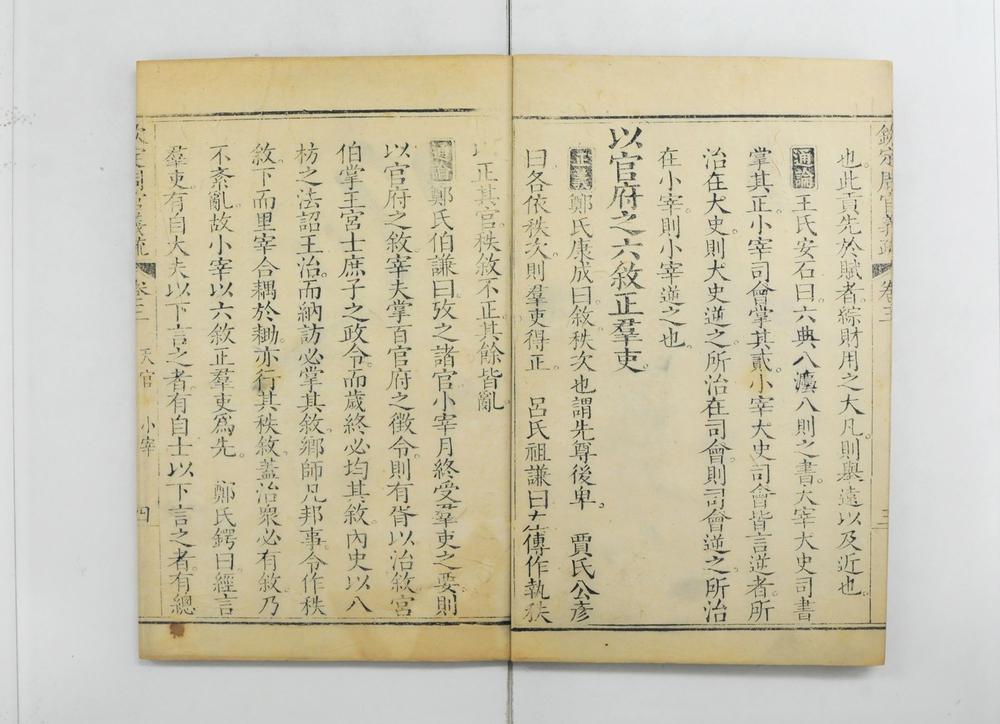 欽定周官義疏 卷三 三
也此貢先於賦者綜財用之大凡則舉遠以及近也
通論 王氏安石曰六典八灋八則之書大宰大史司書
掌其正小宰司會掌其貳小宰大史司會皆言逆者所
治在大史則大史逆之所治在司會則司會逆之所治
在小宰則小宰逆之也
以官府之六敘正羣吏
正義 鄭氏康成曰敘秩次也謂先尊後卑 賈氏公彥
曰各依秩次則羣吏得正 呂氏祖謙曰大傳作執秩
以正其官秩敘不正其餘皆亂
通論 鄭氏伯謙曰攷之諸官小宰月終受羣吏之要則
以官府之敘宰夫掌百官府之徵令則有胥以治敘宮
伯掌王宮士庶子之政令而歲終必均其敘內史以八
枋之法詔王治而納訪必掌其敘鄉師凡邦事令作秩
敘下而里宰合耦於耡亦行其秩敘蓋治衆必有敘乃
不紊亂故小宰以六敘正羣吏爲先 鄭氏鍔曰經言
羣吏有自大夫以下言之者有自士以下言之者有總
欽定周官義疏 卷三 天官 小宰 四